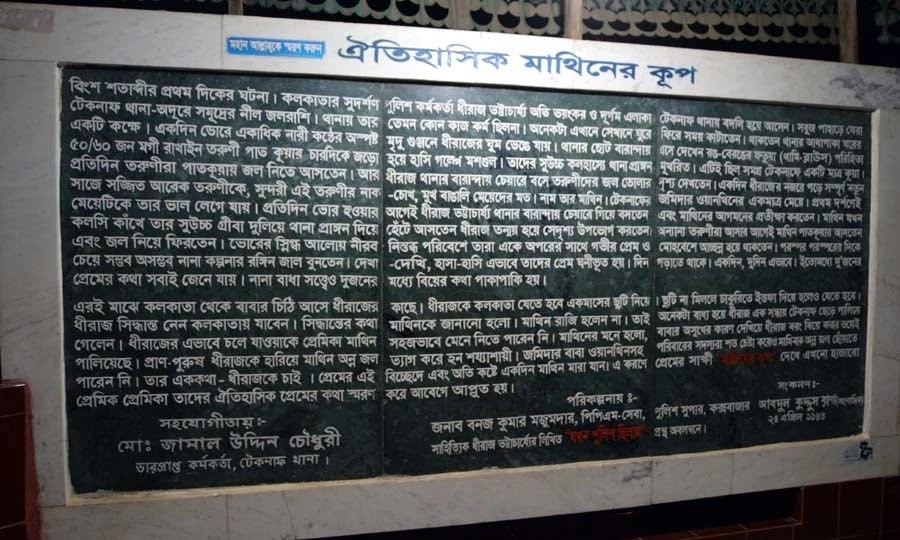 মহান আল্লাহকে স্মরণ করুন
ঐতিহাসিক মাথিনের কূপ
বিংশ শতাব্দীর প্রথম দিকের ঘটনা। কলকাতার সুদর্শণ পুলিশ কর্মকর্তা ধীরাজ ভট্টাচার্য্য অতি ভয়ংকর ও দূর্গম এলাকা টেকনাফ থানায় বদলি হয়ে আসেন। সবুজ পাহাড়ে ঘেরা
টেকনাফ থানা-অদূরে সমুদ্রের নীল জলরাশি। থানায় তার তেমন কোন কাজ কর্ম ছিলনা। অনেকটা এখানে সেখানে ঘুরে ফিরে সময় কাটাতেন। থাকতেন থানার আধাপাকা ঘরের
একটি কক্ষে। একদিন ভোরে একাধিক নারী কন্ঠের অস্পষ্ট মৃদু গুঞ্জনে ধীরাজের ঘুম ভেঙে যায়। থানার ছোট বারান্দায় এসে দেখেন রঙ-বেরঙের ফতুয়া (থামি-ব্লাউস) পরিহিতা
৫০/৬০ জন মগী রাখাইন তরুণী পাত কূয়ার চারদিকে জড়ো হয়ে হাসি গল্পে মশগুল। তাদের সুউচ্চ কলহাস্যে থানা প্রাঙ্গন মুখরিত। এটিই ছিল সমগ্র টেকনাফে একটি মাত্র কূয়া।
প্রতিদিন তরুণীরা পাতকূয়ায় জল নিতে আসতেন। আর ধীরাজ থানার বারান্দায় চেয়ারে বসে তরুণীদের জল তোলার দৃশ্য দেখতেন। একদিন ধীরাজের নজরে পড়ে সম্পূর্ণ নতুন
সাজে সজ্জিত আরেক তরুণীকে, সুন্দরী এই তরুণীর নাক -চোখ, মুখ বাঙালি মেয়েদের মত। নাম তার মাথিন। টেকনাফের জমিদার ওয়ানথিনের একমাত্র মেয়ে। প্রথম দর্শণেই
মেয়েটিকে তার ভাল লেগে যায়। প্রতিদিন ভোর হওয়ার আগেই ধীরাজ ভট্টাচার্য্য থানার বারান্দায় চেয়ারে গিয়ে বসতেন এবং মাথিনের আগমনের প্রতীক্ষা করতেন। মাথিন যখন
কলসি কাঁখে তার সুউচ্চ গ্রীবা দুলিয়ে থানা প্রাঙ্গন দিয়ে হেঁটে আসতেন ধীরাজ তন্ময় হয়ে সেদৃশ্য উপভোগ করতেন অন্যান্য তরুণীরা আসার আগেই মাথিন পাতকূয়ায় আসতেন
এবং জল নিয়ে ফিরতেন। ভোরের স্নিগ্ধ আলোয় নীরব নিস্তব্ধ পরিবেশে তারা একে অপরের সাথে গভীর প্রেম ও মোহবেশে আচ্ছন্ন হয়ে থাকতেন। পরস্পর পরস্পরের দিকে
চেয়ে সম্ভব অসম্ভব নানা কল্পনার রঙ্গিন জাল বুনতেন। দেখা -দেখি, হাসা-হাসি এভাবে তাদের প্রেম ঘনীভূত হয়। দিন গড়াতে থাকে। একদিন, দুদিন এভাবে। ইতোমধ্যে দু'জনের
প্রেমের কথা সবাই জেনে যায়। নানা বাধা সত্ত্বেও দুজনের মধ্যে বিয়ের কথা পাকাপাকি হয়।
এরই মাঝে কলকাতা থেকে বাবার চিঠি আসে ধীরাজের কাছে। ধীরাজকে কলকাতা যেতে হবে একমাসের ছুটি নিয়ে। ছুটি না মিললে চাকুরিতে ইস্তফা দিয়ে হলেও যেতে হবে।
ধীরাজ সিদ্ধান্ত নেন কলকাতায় যাবেন। সিদ্ধান্তের কথা মাথিনকে জানানো হলো। মাথিন রাজি হলেন না। তাই অনেকটা বাধ্য হয়ে ধীরাজ এক সন্ধ্যায় টেকনাফ ছেড়ে পালিয়ে
গেলেন। ধীরাজের এভাবে চলে যাওয়াকে প্রেমিকা মাথিন সহজভাবে মেনে নিতে পারেন নি। মাথিনের মনে হলো, বাবার অসুখের কারণ দেখিয়ে ধীরাজ বরং বিয়ে করার ভয়েই
পালিয়েছে। প্রাণ-পুরুষ ধীরাজকে হারিয়ে মাথিন অন্ন জল ত্যাগ করে হন শয্যাশায়ী। জমিদার বাবা ওয়ানথিনসহ পরিবারের সদস্যরা শত চেষ্টা করেও মাথিনকে অন্ন জল ছোঁয়াতে
পারেন নি। তার এককথা- ধীরাজকে চাই। প্রেমের এই বিচ্ছেদে এবং অতি কষ্টে একদিন মাথিন মারা যান। এ কারণে প্রেমের সাক্ষী "মাথিনের কূপ" দেখে এখনো হাজারো
প্রেমিক প্রেমিকা তাদের ঐতিহাসিক প্রেমের কথা স্মরণ করে আবেগে আপ্লুত হয়।
সহযোগীতায়:-
মোঃ জামাল উদ্দিন চৌধুরী
ভারপ্রাপ্ত কর্মকর্তা, টেকনাফ থানা।
পরিকল্পনায় ঃ-
জনাব বনজ কুমার মজুমদার, পিপিএম-সেবা, পুলিশ সুপার, কক্সবাজার
সাহিত্যিক ধীরাজ ভট্টাচার্য্যের লিখিত "যখন পুলিশ ছিলাম" গ্রন্থ অবলম্বনে।
সংকলন ঃ-
আবদুল কুদ্দুস রানা